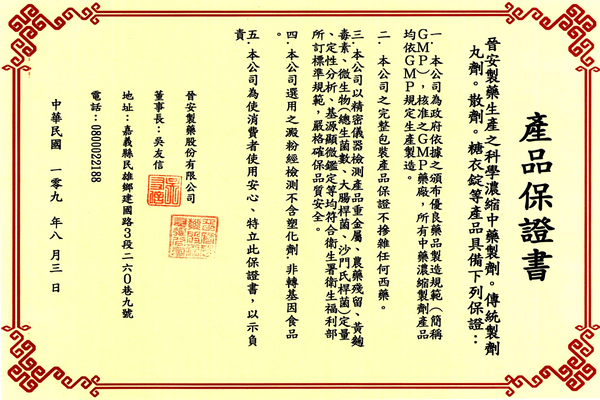 產品保證書
晉安製藥生產之科學濃縮中藥製劑。傳統製劑
丸劑。散劑。糖衣錠等產品具備下列保證：
一. 本公司為政府依據之頒布優良藥品製造規範（簡稱
GMP），核准之GMP藥廠，所有中藥濃縮製劑產品
均依GMP規定生產製造。
二. 本公司之完整包裝產品保證不摻雜任何西藥。
三. 本公司以精密儀器檢測產品重金屬、農藥殘留、黃麴
毒素、微生物(總生菌數、大腸桿菌、沙門氏桿菌)定量
、定性分析、基源顯微鑑定等均符合衛生署衛生福利部
所訂標準規範，嚴格確保品質安全。
四. 本公司選用之澱粉經檢測不含塑化劑.非轉基因食品
。
五. 本公司為使消費者使用安心、特立此保證書，以示負
責。
晉安製藥股份有限公司
董事長：吳友信
地址：嘉義縣民雄鄉建國路3段二六0巷九號
電話：0800022188
中華民國 一零九 年八月三日